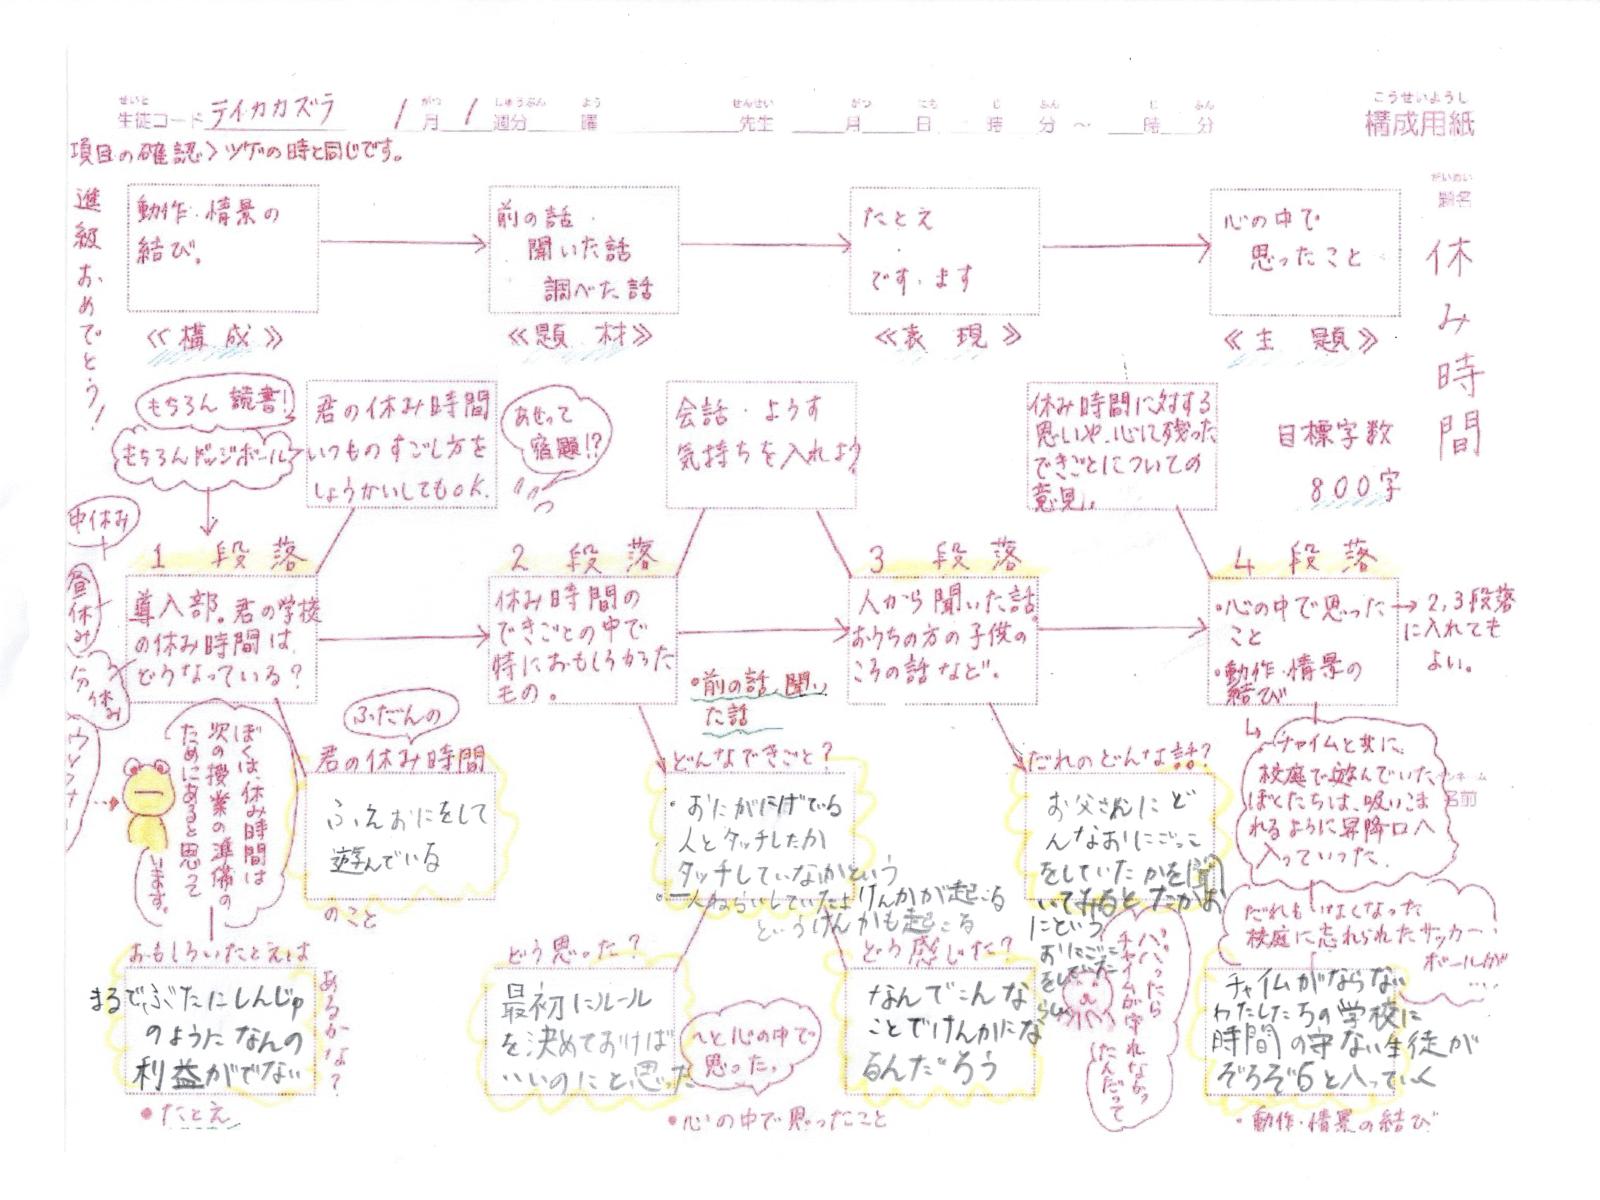 こうせいようし
構成用紙
せいと
生徒コード テイカカズラ
がつ しゅうぶん よう
1月1週分 曜
せんせい がつ にち じ ふん じ ふん
先生 月 日 時 分 〜 時 分
項目の確認〉ツゲの時と同じです。
進級おめでとう!
だいめい
題名
休み時間
動作・情景の
結び。
《構成》
前の話・
聞いた話
調べた話
《題材》
たとえ
・
です・ます
《表現》
心の中で
思ったこと
《主題》
目標字数
800字
もちろん読書!
もちろんドッジボール
君の休み時間
いつものすごし方を
しょうかいしてもOK.
あせって
宿題!?
会話・ようす
気持ちを入れよう
休み時間に対する
思いや、心に残った
できごとについての
意見。
中休み
昼休み
分休み
1段落
導入部。君の学校
の休み時間は、
どうなっている?
2段落
休み時間の
できごとの中で
特におもしろかった
もの。
3段落
人から聞いた話。
おうちの方の子供の
ころの話など。
4段落
・心の中で思った
こと
・動作・情景の
結び
→2,3段落
に入れても
よい。
・前の話、聞い
た話
ぼくは、休み時間は
次の授業の準備の
ためにあると思って
います。
ふだんの
君の休み時間
ふえおにをして
遊んでいる
のこと
どんなできごと?
・おにがにげている
人とタッチしたか
タッチしていなかという
けんかが起こる
・一人ねらいしていたよ
というけんかも起こる
だれのどんな話?
お父さんにど
んなおにごっこ
をしていたかを聞
いてみるとたかお
にという
おにごっこ
をしていた
らしい
チャイムと共に、
校庭で遊んでいた
ぼくたちは、吸いこま
れるように昇降口へ
入っていった.
ペンネーム
名前
だれもいなくなった
校庭に忘れられたサッカー
ボールが
....
おもしろいたとえは
あるかな?
まるでぶたにしんじゅ
のようになんの
利益がでない
・たとえ
どう思った?
最初にルール
を決めておけば
いいのにと思った
〜と心の中で
思った。
・心の中で思ったこと
どう感じた?
なんでこんな
ことでけんかにな
るんだろう
パパったら
チャイムが守れなかっ
たんだって
チャイムがならない
わたしたちの学校に
時間の守ない生徒が
ぞろぞろと入っていく
・動作・情景の結び